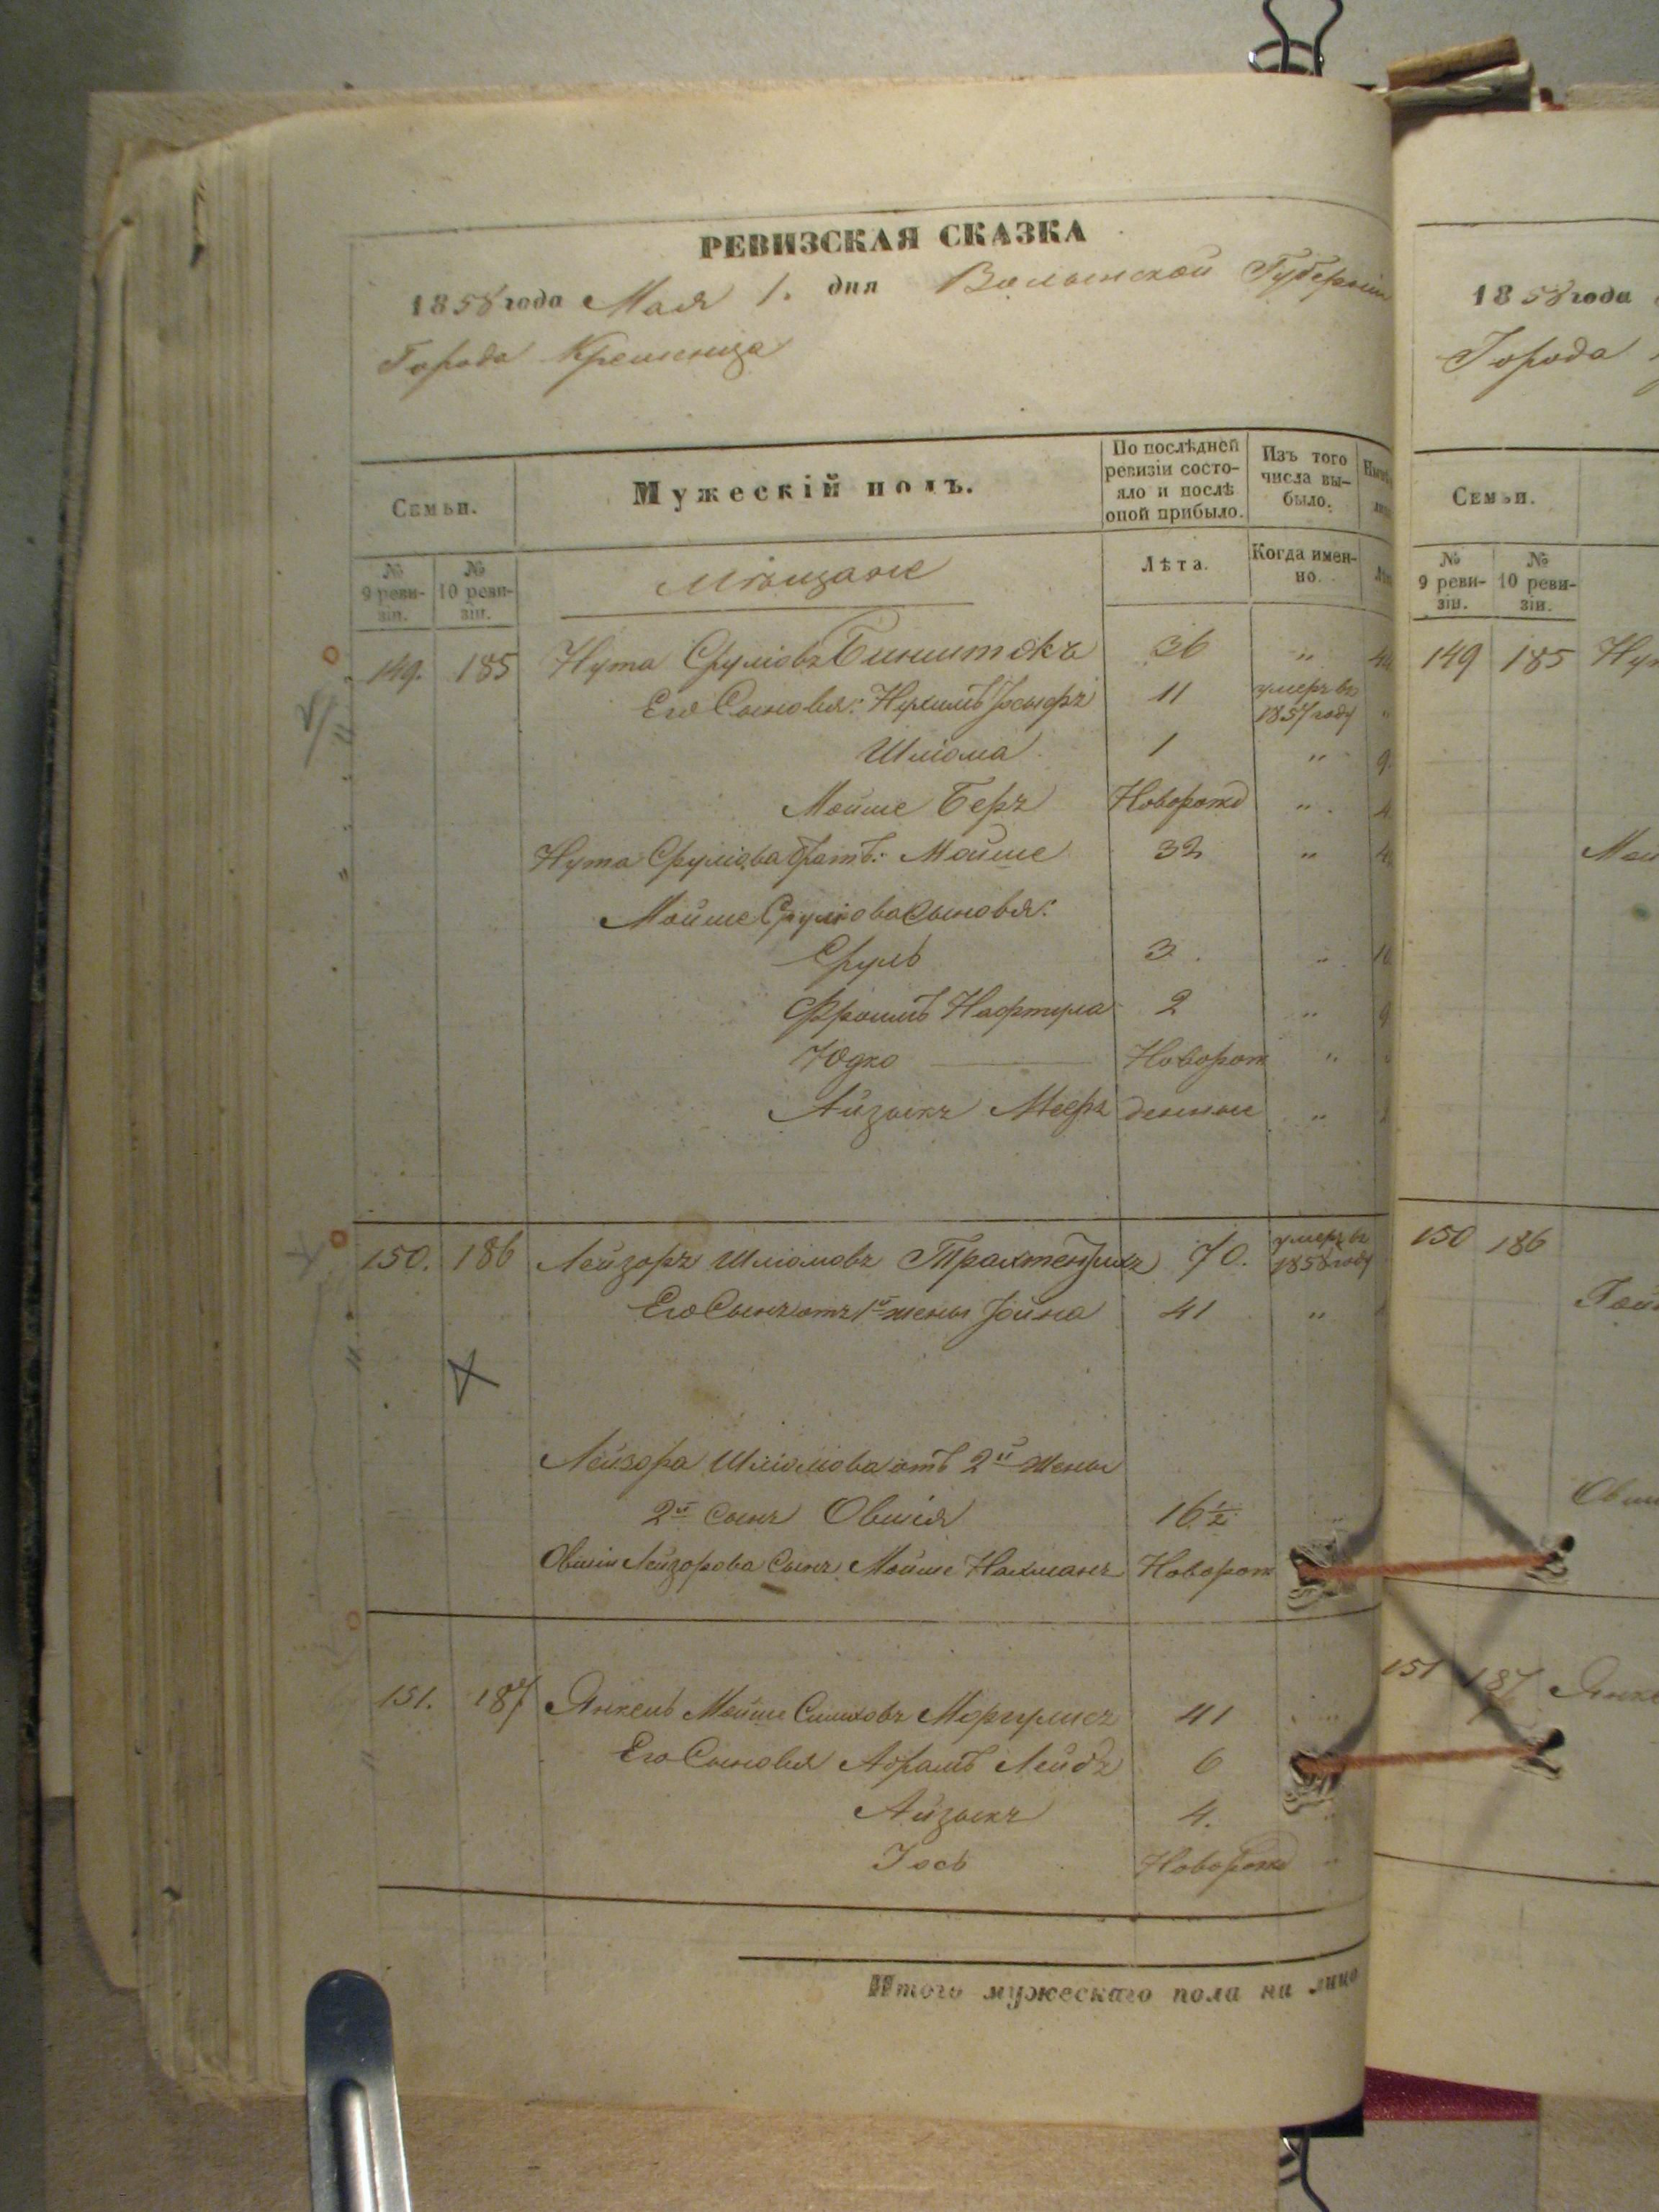 РЕВИЗСКАЯ СКАЗКА
1858 года Мая 1. дня Волынской Губерніи
Города Кременца
Семьи.
Мужескій полъ.
По послѣдней ревизіи состо-
яло и послѣ
оной прибыло.
Изъ того
числа вы-
было.
№ 9 реви-
зіи.
№ 10 реви-
зіи.
Мѣщане
Лѣта.
Когда имен-
но.
149. 185 Нута Сруліовъ Бинштокъ 36 „
Его Сыновья: Нухимъ Іосыфъ 11 умеръ въ 1857 году
Шліома 1 „
Мойше Беръ Новорожд „
Нута Сруліова братъ: Мойше 32 „
Мойше Сруліова Сыновья:
Сруль 3. „
Фроимъ Нафтула 2 „
Юдко Новорож „
Айзыкъ Мееръ денные „
150. 186 Лейзоръ Шліомовъ 70. умеръ въ 1858 году
Его Сынъ отъ 1й жены Іойна 41 „
Лейзора Шліомова отъ 2й жены
2й сынъ Овшія 16 1/2
Овшіи Лейзорова Сынъ Мойше Нахманъ Новорож
151. 187 Янкель Мойше Симховъ Моргулисъ 41
Его Сыновья Абрамъ Лейбъ 6
Айзыкъ 4.
Іось Новорожд „
Итого мужескаго пола на лицо
1858 года
Города
Семьи.
№ 9 реви-
зіи.
№ 10 реви-
зіи.
149 185
150 186
151 187